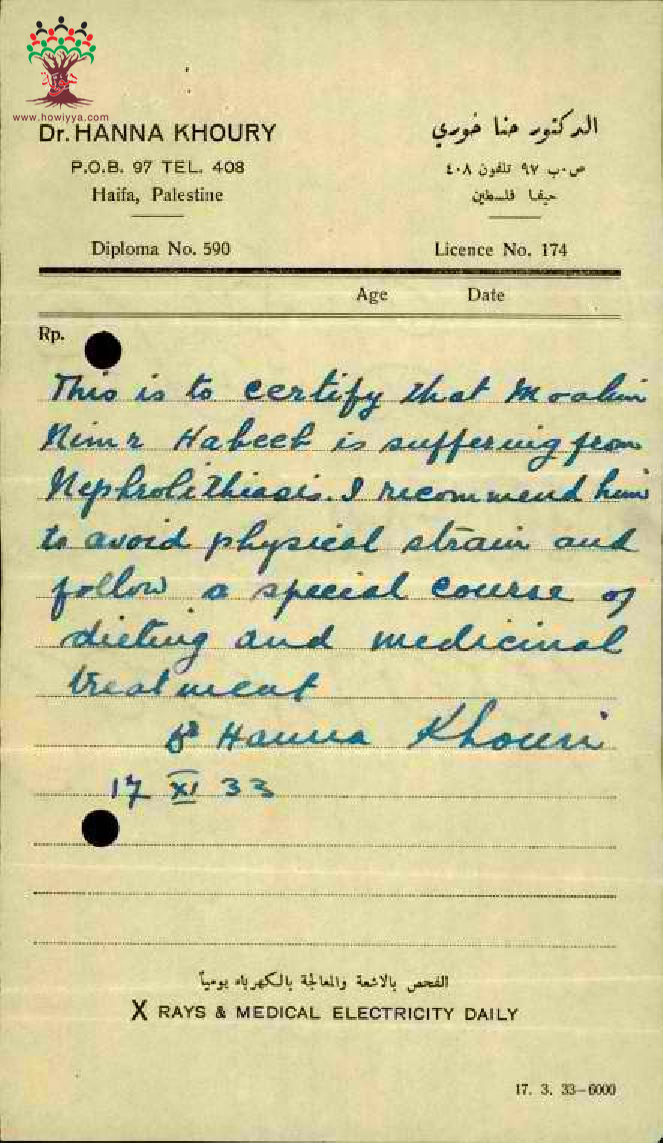 www.howiyya.com
Dr. HANNA KHOURY
P.O.B. 97 TEL. 408
Haifa, Palestine
الدكتور حنا خوري
ص.ب ٩٧ تلفون ٤٠٨
حيفا فلسطين
Diploma No. 590
Licence No. 174
Age Date
Rp.
This is to certify that
Nimr Habeeb is suffering from
Nephrolithiasis. I recommend him
to avoid physical strain and
follow a special course of
dieting and medicinal
treatment
Dr Hanna Khouri
17 XI 33
الفحص بالاشعة والمعالجة بالكهرباء يومياً
X RAYS & MEDICAL ELECTRICITY DAILY
17. 3. 33—6000